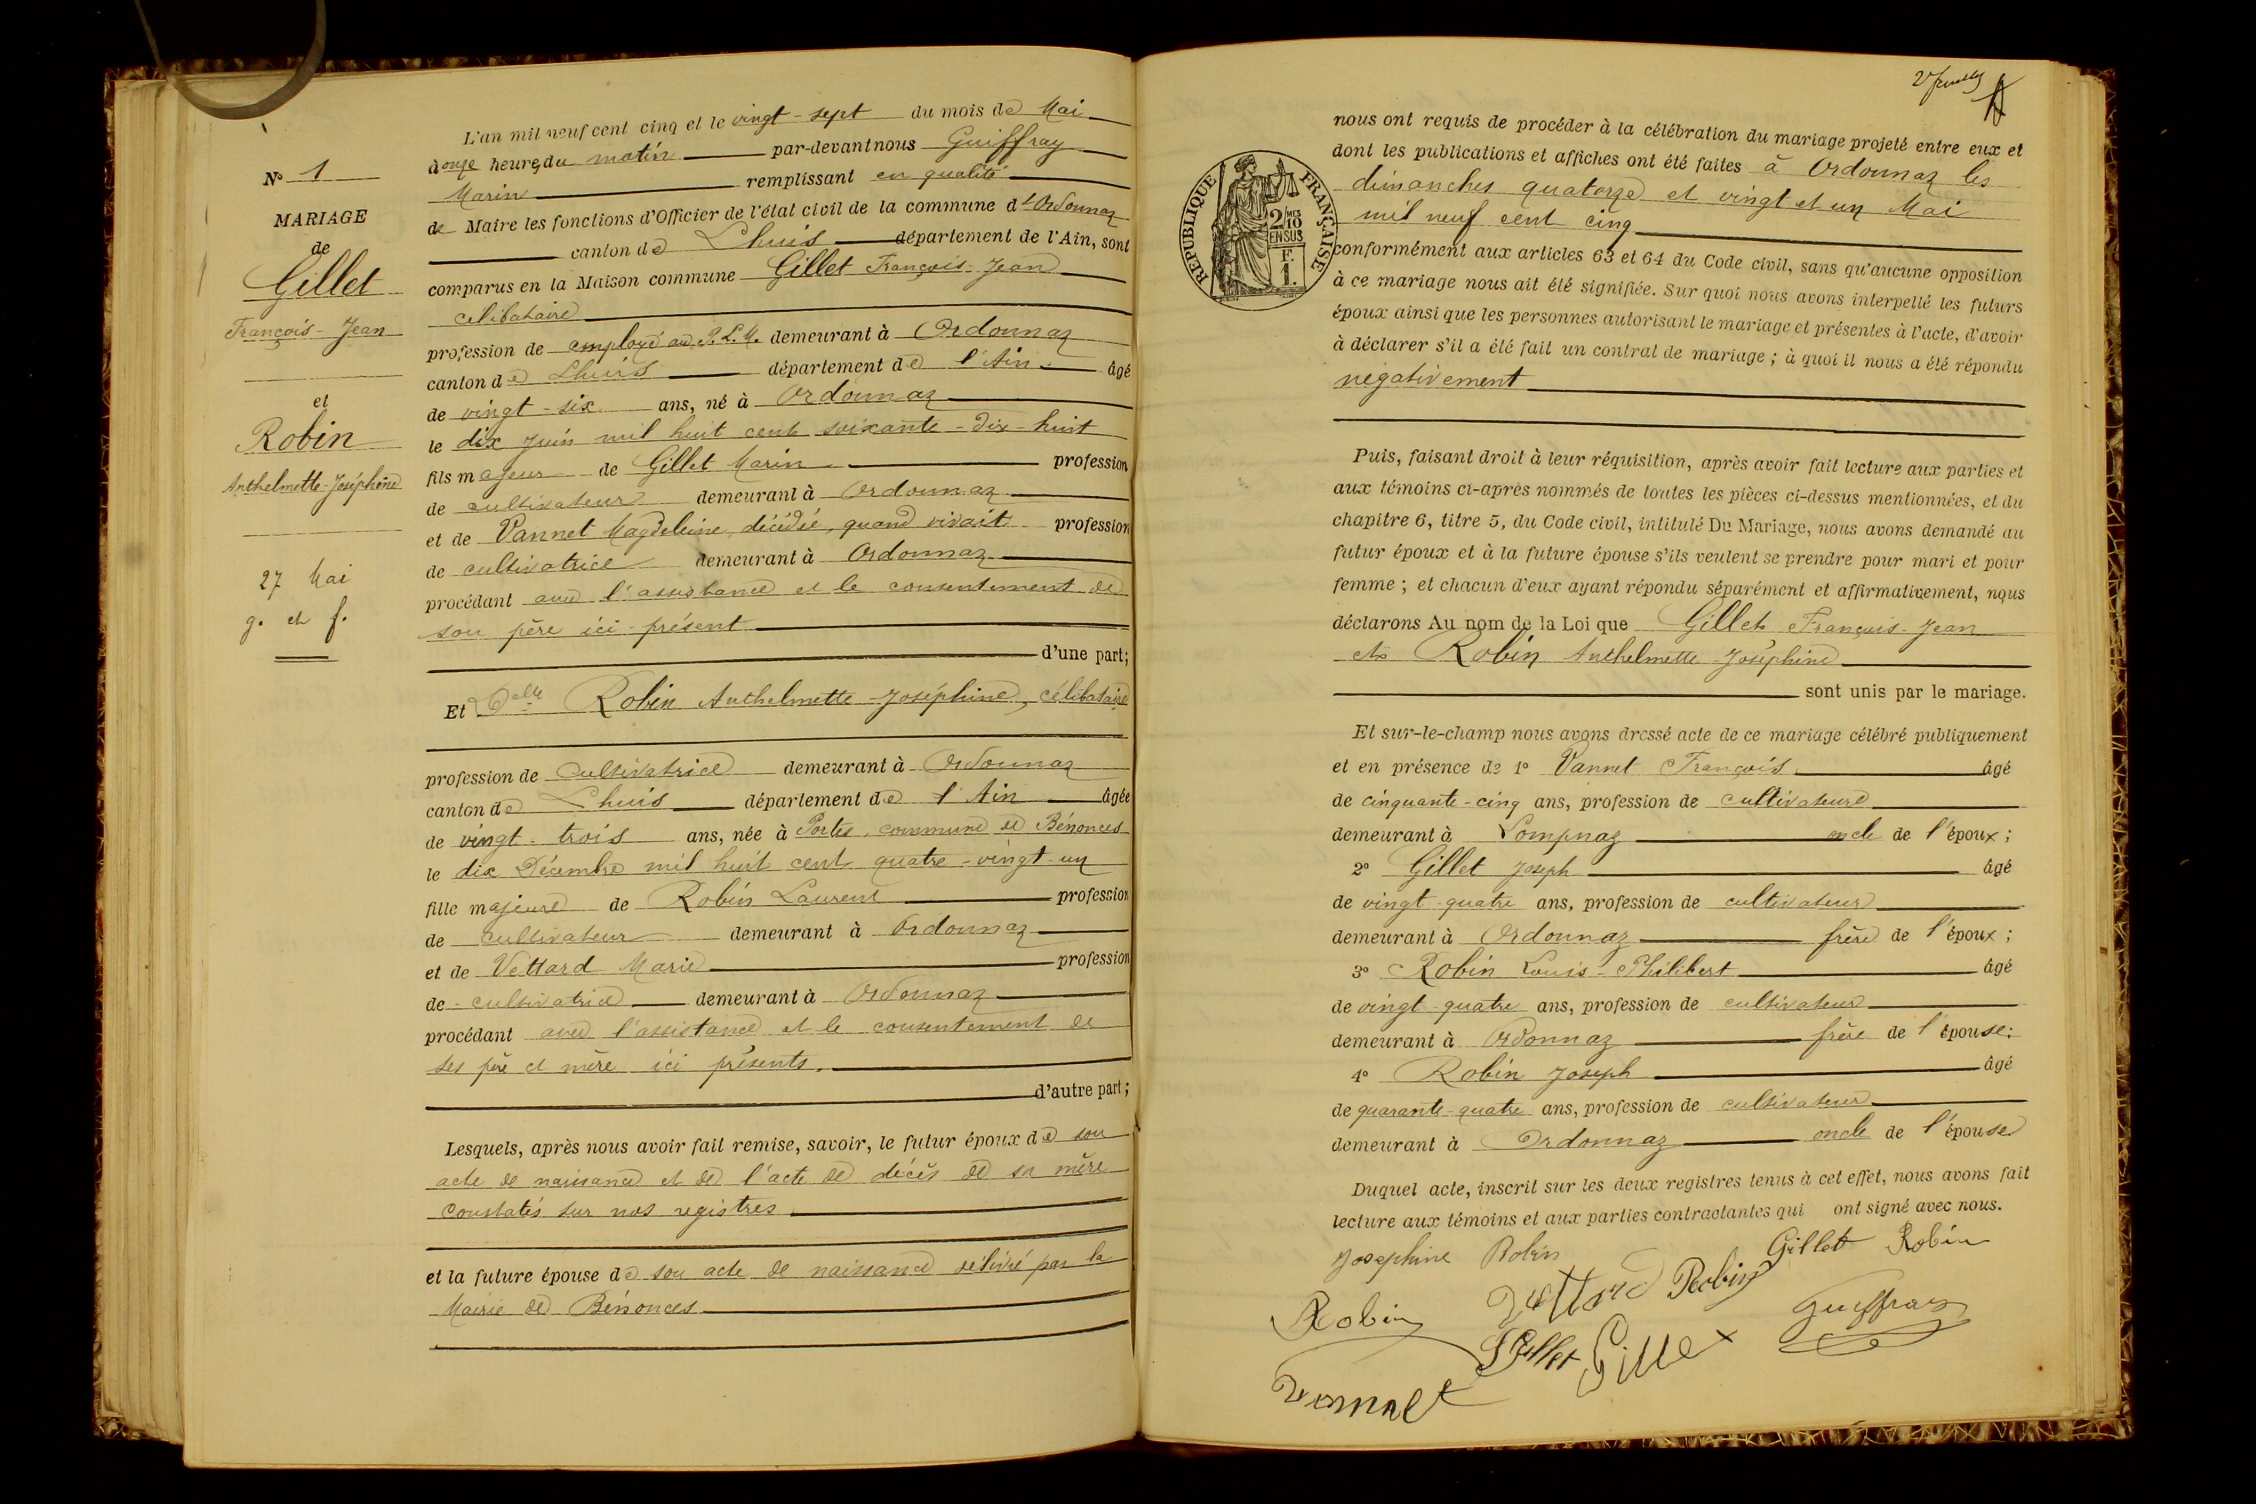 N° 1
MARIAGE
de
Gillet
François-Jean
et
Robin
Anthelmette-Joséphine
27 Mai
g. et f.
L'an mil neuf cent cinq et le vingt-sept du mois de Mai
à onze heures du matin par-devant nous Guiffray
Marin remplissant en qualité
de Maire les fonctions d'Officier de l'état civil de la commune d'Ordonnaz
canton de Lhuis département de l'Ain, sont
comparus en la Maison commune Gillet François-Jean
célibataire
profession de employé au P.L.M. demeurant à Ordonnaz
canton de Lhuis département de l'Ain âgé
de vingt-six ans, né à Ordonnaz
le dix Juin mil huit cent soixante-dix-huit
fils majeur de Gillet Marin profession
de cultivateur demeurant à Ordonnaz
et de Vannet Magdeleine, décédée, quand vivait profession
de cultivatrice demeurant à Ordonnaz
procédant avec l'assistance et le consentement de
son père ici présent
d'une part;
Et Delle Robin Anthelmette-Joséphine, célibataire
profession de cultivatrice demeurant à Ordonnaz
canton de Lhuis département de l'Ain âgée
de vingt-trois ans, née à Portes, commune de Bénonces
le dix Décembre mil huit cent quatre-vingt-un
fille majeure de Robin Laurent profession
de cultivateur demeurant à Ordonnaz
et de Vettard Marie profession
de cultivatrice demeurant à Ordonnaz
procédant avec l'assistance et le consentement de
ses père et mère ici présents.
d'autre part;
Lesquels, après nous avoir fait remise, savoir, le futur époux de son
acte de naissance et de l'acte de décès de sa mère
constatés sur nos registres
et la future épouse de son acte de naissance délivré par la
Mairie de Bénonces
nous ont requis de procéder à la célébration du mariage projeté entre eux et
dont les publications et affiches ont été faites à Ordonnaz les
dimanches quatorze et vingt et un Mai
mil neuf cent cinq
RÉPUBLIQUE FRANÇAISE
2/10
EN SUS
F.
1.
conformément aux articles 63 et 64 du Code civil, sans qu'aucune opposition
à ce mariage nous ait été signifiée. Sur quoi nous avons interpellé les futurs
époux ainsi que les personnes autorisant le mariage et présentes à l'acte, d'avoir
à déclarer s'il a été fait un contrat de mariage; à quoi il nous a été répondu
negativement
Puis, faisant droit à leur réquisition, après avoir fait lecture aux parties et
aux témoins ci-après nommés de toutes les pièces ci-dessus mentionnées, et du
chapitre 6, titre 5, du Code civil, intitulé Du Mariage, nous avons demandé au
futur époux et à la future épouse s'ils veulent se prendre pour mari et pour
femme; et chacun d'eux ayant répondu séparément et affirmativement, nous
déclarons Au nom de la Loi que Gillet François-Jean
et Robin Anthelmette-Joséphine
sont unis par le mariage.
Et sur-le-champ nous avons dressé acte de ce mariage célébré publiquement
et en présence de 1° Vannet François âgé
de cinquante-cinq ans, profession de cultivateur
demeurant à Lompnaz oncle de l'époux;
2° Gillet Joseph âgé
de vingt-quatre ans, profession de cultivateur
demeurant à Ordonnaz frère de l'époux;
3° Robin Louis-Philibert âgé
de vingt-quatre ans, profession de cultivateur
demeurant à Ordonnaz frère de l'épouse;
4° Robin Joseph âgé
de quarante-quatre ans, profession de cultivateur
demeurant à Ordonnaz oncle de l'épouse
Duquel acte, inscrit sur les deux registres tenus à cet effet, nous avons fait
lecture aux témoins et aux parties contractantes qui ont signé avec nous.
Josephine Robin Gillet Robin
Robin Vettard Robin Guiffray
Gillet Gillet
Vannet